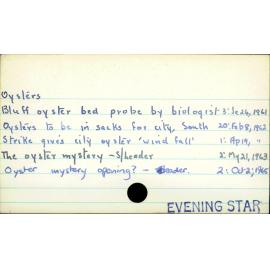 Oysters
Bluff oyster bed probe by biologist 3: Je 24, 1961
Oysters to be in sacks for city, South 20: Feb 8, 1962
Strike gives city oyster 'wind fall' 1: Ap 19, "
The oyster mystery - S/leader 2: My 21, 1963
Oyster mystery opening? - leader. 2: Oct 2, 1965
EVENING STAR